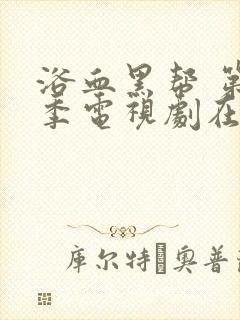 浴血黑帮 第
季電視劇在
库尔特 奥普